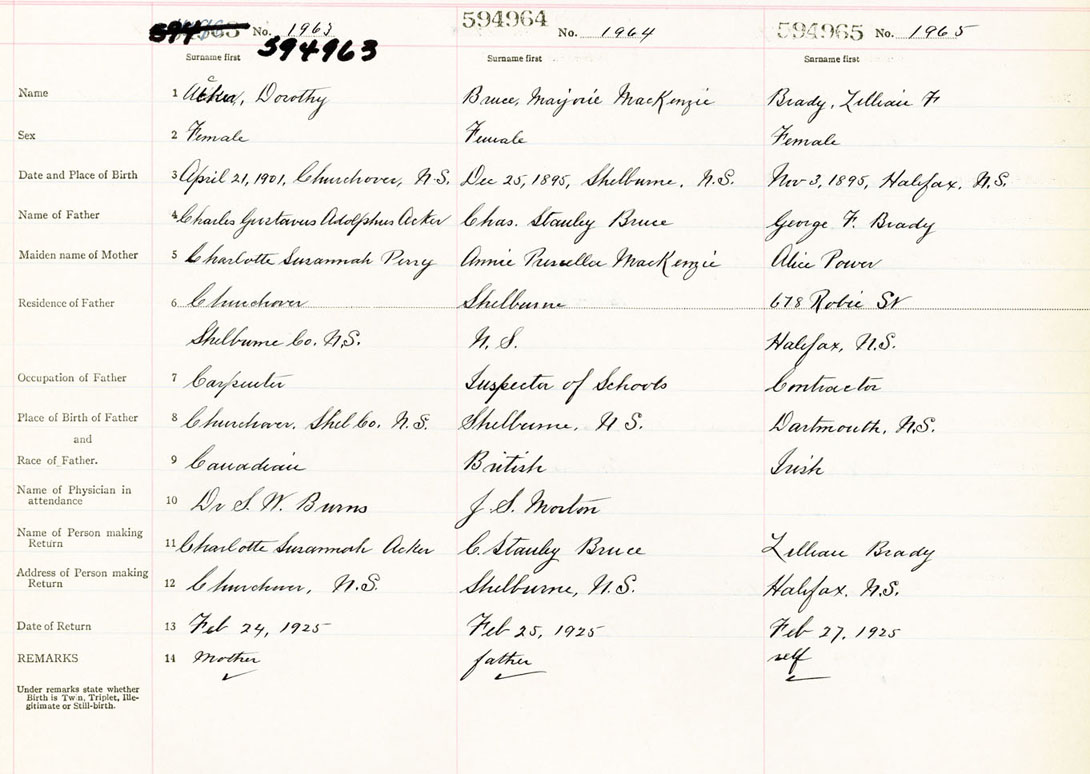 594963 No. 1963 594964 No. 1964 594965 No. 1965
594963
Surname first Surname first Surname first
Name 1 Acker, Dorothy Bruce, Marjorie MacKenzie Brady, Lillian F
Sex 2 Female Female Female
Date and Place of Birth 3 April 21, 1901, Churchover, N.S. Dec 25, 1895, Shelburne, N.S. Nov 3, 1895, Halifax, N.S.
Name of Father 4 Charles Gustavus Adolphus Acker Chas. Stanley Bruce George F. Brady
Maiden name of Mother 5 Charlotte Susannah Perry Annie Prescella MacKenzie Alice Power
Residence of Father 6 Churchover Shelburne 678 Robie St
Shelburne Co. N.S. N.S. Halifax, N.S.
Occupation of Father 7 Carpenter Inspector of Schools Contractor
Place of Birth of Father 8 Churchover, Shel Co. N.S. Shelburne, N S. Dartmouth, N.S.
and
Race of Father. 9 Canadian British Irish
Name of Physician in
attendance 10 Dr S. W. Burns J. S. Morton
Name of Person making
Return 11 Charlotte Susannah Acker C. Stanley Bruce Lillian Brady
Address of Person making
Return 12 Churchover, N.S. Shelburne, N.S. Halifax. N.S.
Date of Return 13 Feb 24, 1925 Feb 25, 1925 Feb 27, 1925
REMARKS 14 Mother father self
Under remarks state whether
Birth is Twin, Triplet, Ille-
gitimate or Still-birth.